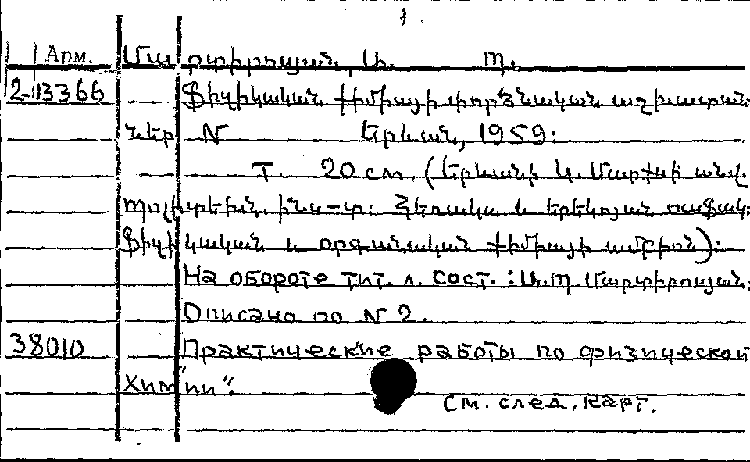 1.
Арм. Մարտիրոսյան, Ս. Պ.
2-13366 Ֆիզիկական քիմիայի փորձնական աշխատան-
ներ N Երևան, 1959:
Т. 20 см. (Երևանի Կ. Մարքսի անվ.
պոլիտեխն. ինս-տ: Հեռակա և երեկոյան ֆակ:
Ֆիզիկական և օրգանական քիմիայի ամբիոն):
На обороте тит. л. сост.: Ս. Պ. Մարտիրոսյան:
Описано по N 2.
38010 Практические работы по физической
химии".
См. след. карт.